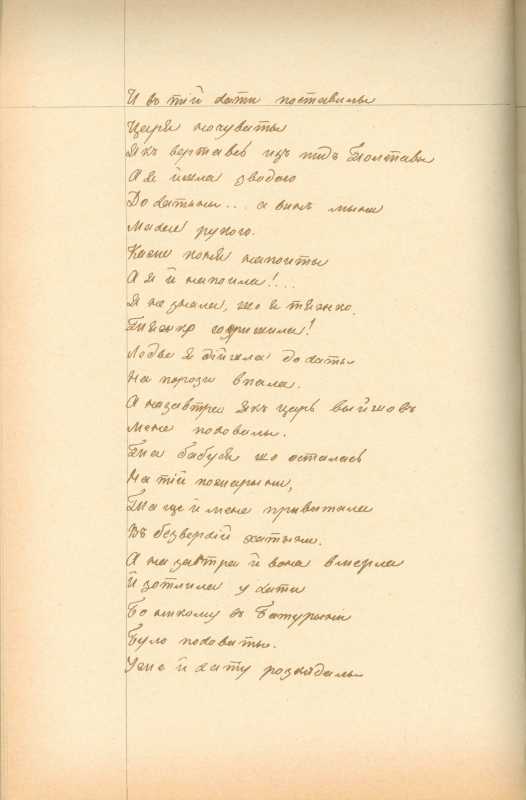 И въ тій хати поставылы
Царя ночуваты
Якъ вертавсь изъ пидъ Полтавы
А я йшла зводою
До хатыны... а винъ мыни
Махае рукою.
Каже коня напоиты
А я й напоила!...
Я не знала, що я тяжко,
Тяжко согришила!
Ледве я дійшла до хаты
На порози впала.
А назавтра якъ царь выйшовъ
Мене поховалы.
Та бабуся що осталась
На тій пожарыни,
Та ще й мене прывитала
Въ безверхій хатыни.
А на завтра й вона вмерла
Й зотлила у хати
Бо никому въ Батурыни
Було поховаты.
Уже й хату розкидалы